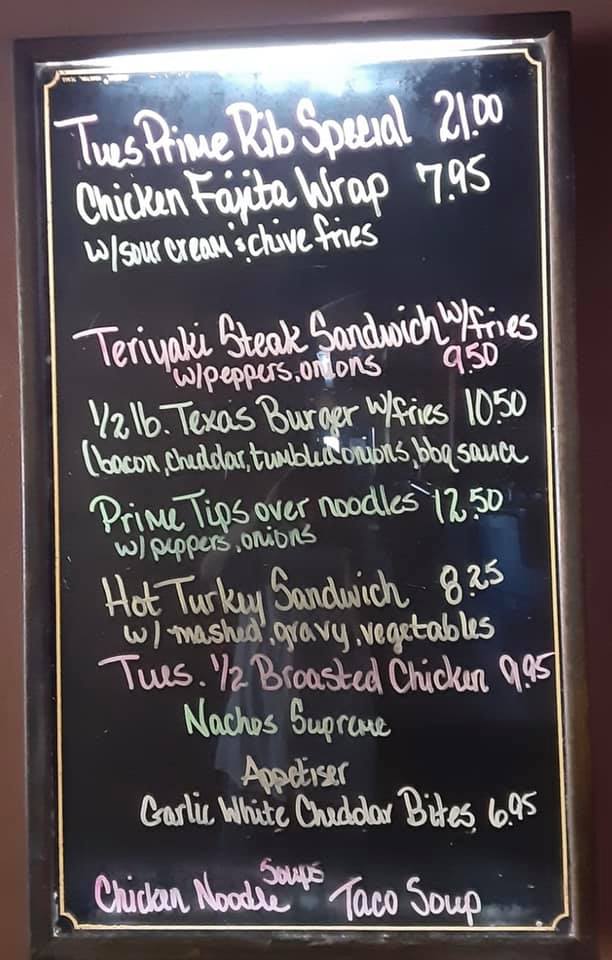 Tues Prime Rib Special 21.00
Chicken Fajita Wrap 7.95
w/sour cream & chive fries
Teriyaki Steak Sandwich w/fries
w/peppers, onions 9.50
1/2 lb. Texas Burger w/fries 10.50
(bacon, cheddar, tumbled onions, bbq sauce
Prime Tips over noodles 12.50
w/ peppers, onions
Hot Turkey Sandwich 8.25
w/ mashed, gravy, vegetables
Tues. 1/2 Broasted Chicken 9.95
Nachos Supreme
Appetiser
Garlic White Cheddar Bites 6.95
Soups
Chicken Noodle Taco Soup